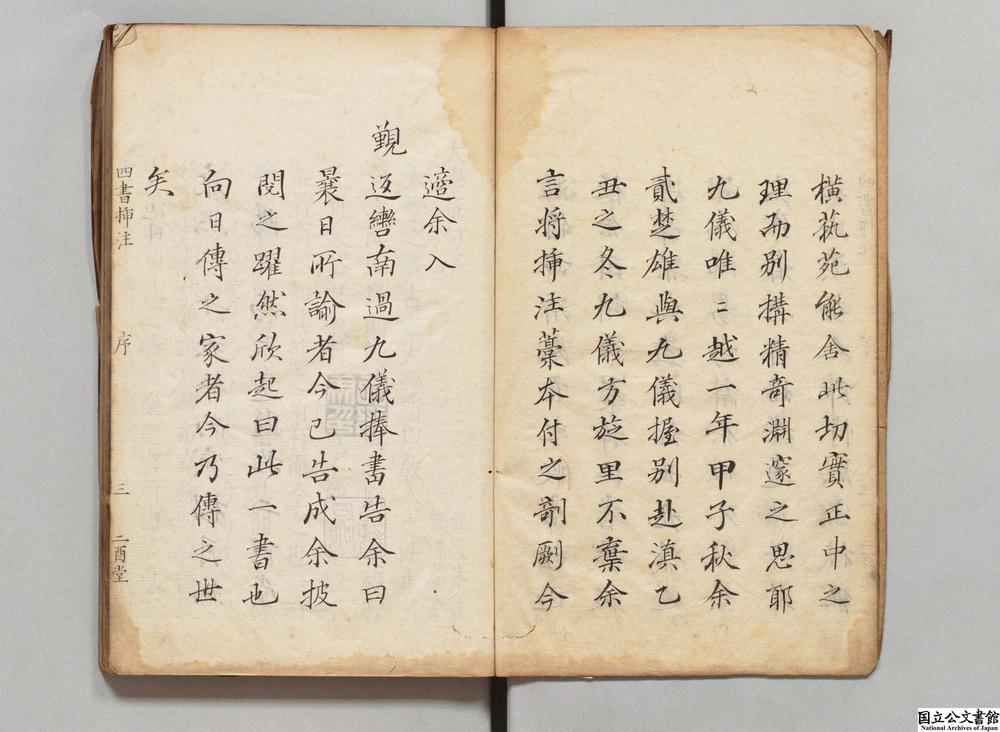 橫蓺苑能舍此切實正中之
理而別搆精奇淵邃之思耶
九儀唯〻越一年甲子秋余
貳楚雄與九儀握別赴滇乙
丑之冬九儀方旋里不棄余
言將揷注藁本付之剞劂今
適余入
覲返轡南過九儀捧書告余曰
曩日所諭者今已告成余披
閱之躍然欣起曰此一書也
向日傳之家者今乃傳之世
矣
四書揷注 序 三 二酉堂
国立公文書館
National Archives of Japan